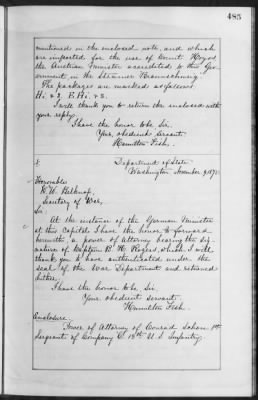 485
mentioned in the enclosed note, and which
are imported for the use of Count Hoyos
the Austrian Minister accredited to this Gov-
ernment, in the Steamer Braunschweig.
The packages are marked as follows
H. & 2. B. H. & 3.
I will thank you to return the enclosed with
your reply.
I have the honor to be, Sir,
Your obedient servant
Hamilton Fish.
Department of State
Washington November 9, 187
Honorable
W. W. Belknap,
Secretary of War,
Sir,
At the instance of the German Minister
at this Capital I have the honor to forward
herewith, a power of Attorney bearing the sig-
nature of Captain B. H. which I will
thank you to have authenticated under the
seal of the War Department and returned
hither.
I have the honor to be, Sir,
Your obedient servant.
Hamilton Fish.
Enclosure.
Power of Attorney of Conrad 1st
Sergeant of Company C. U. S. Infantry.